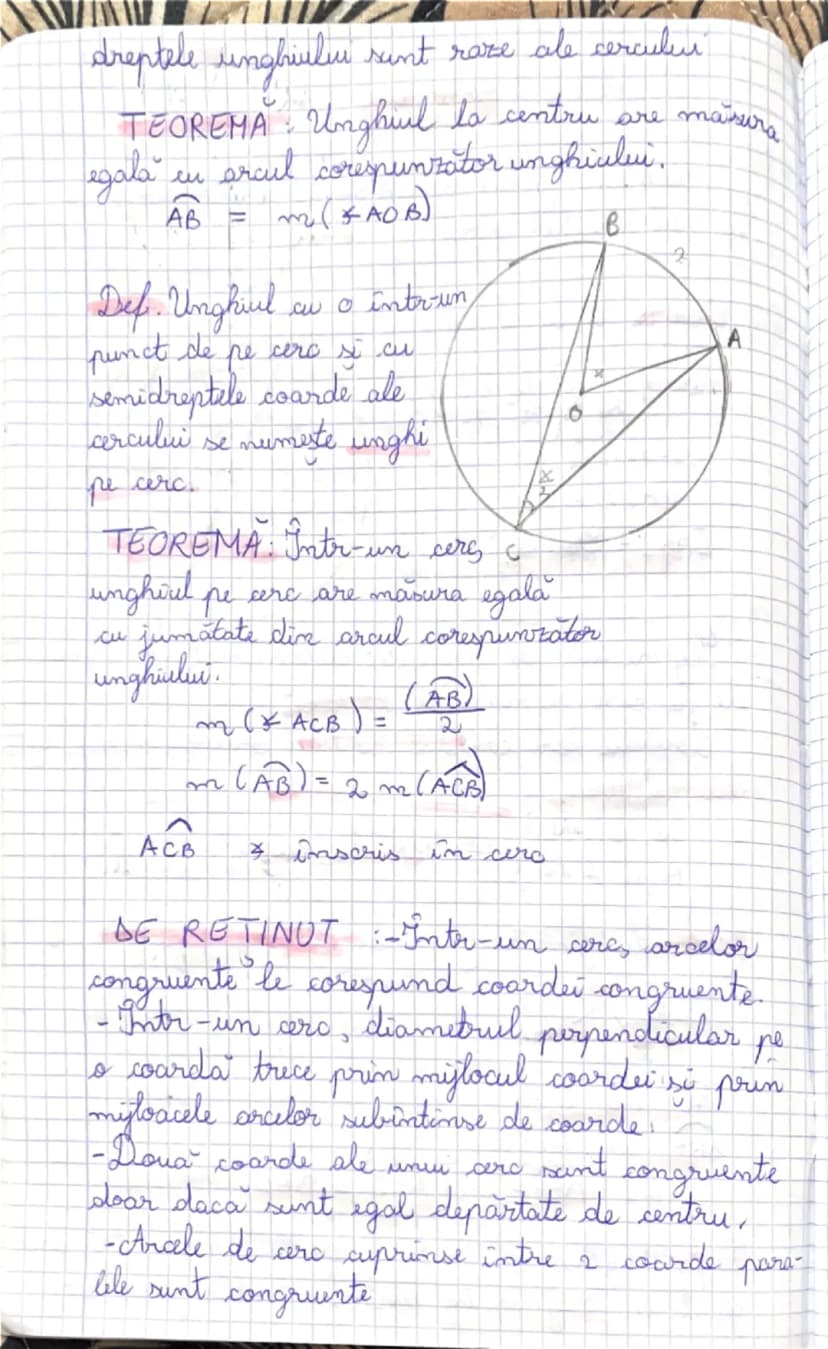 dreptele unghiului sunt raze ale cercului
TEOREMĂ: Unghiul la centru are măsura
egală cu arcul corespunzător unghiului.
AB = m(∢AOB)
B
2
Def. Unghiul cu o într-un
A
punct de pe cerc și cu
x
semidreptele coarde ale
O
cercului se numește unghi
x/2
pe cerc.
TEOREMĂ: Într-un cerc,
C
unghiul pe cerc are măsura egală
cu jumătate din arcul corespunzător
unghiului.
m(∢ACB) = (AB)/2
m(AB) = 2 m(ACB)
ACB ∢ înscris în cerc
DE REȚINUT :-Într-un cerc, arcelor
congruente le corespund coardei congruente.
- Într-un cerc, diametrul perpendicular pe
o coardă trece prin mijlocul coardei și prin
mijloacele arcelor subîntinse de coarde.
-Două coarde ale unui cerc sunt congruente
doar dacă sunt egal depărtate de centru.
-Arcele de cerc cuprinse între 2 coarde para-
lele sunt congruente